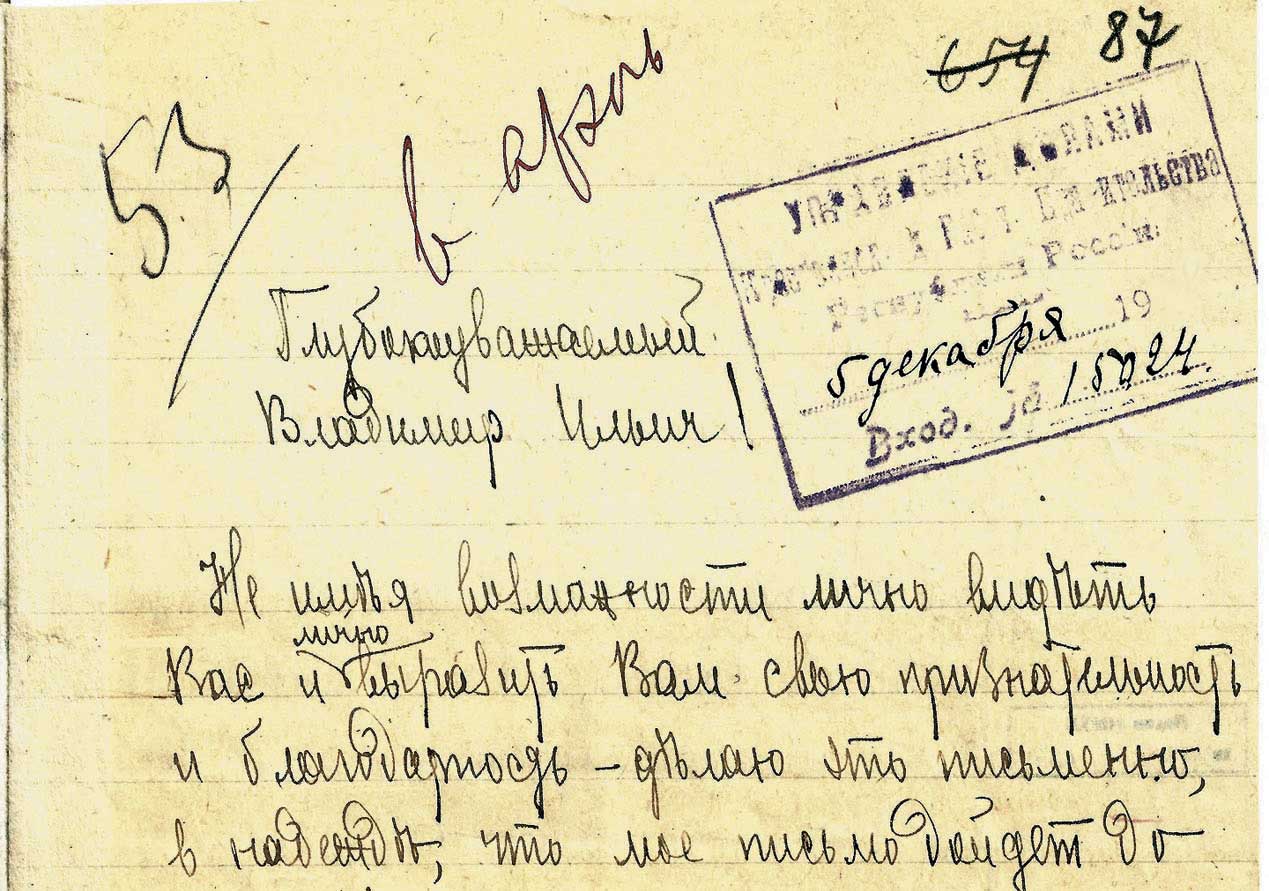 654 87
53/
в архив
УПРАВЛЕНІЕ ДѢЛАМИ
Правительства
Республики Россіи.
5 декабря 19
Вход. № 15024.
Глубокоуважаемый
Владимир Ильич!
Не имѣя возможности лично видѣть
Вас и лично выразить Вам свою признательность
и благодарность – дѣлаю это письменно,
в надеждѣ, что мое письмо дойдет до